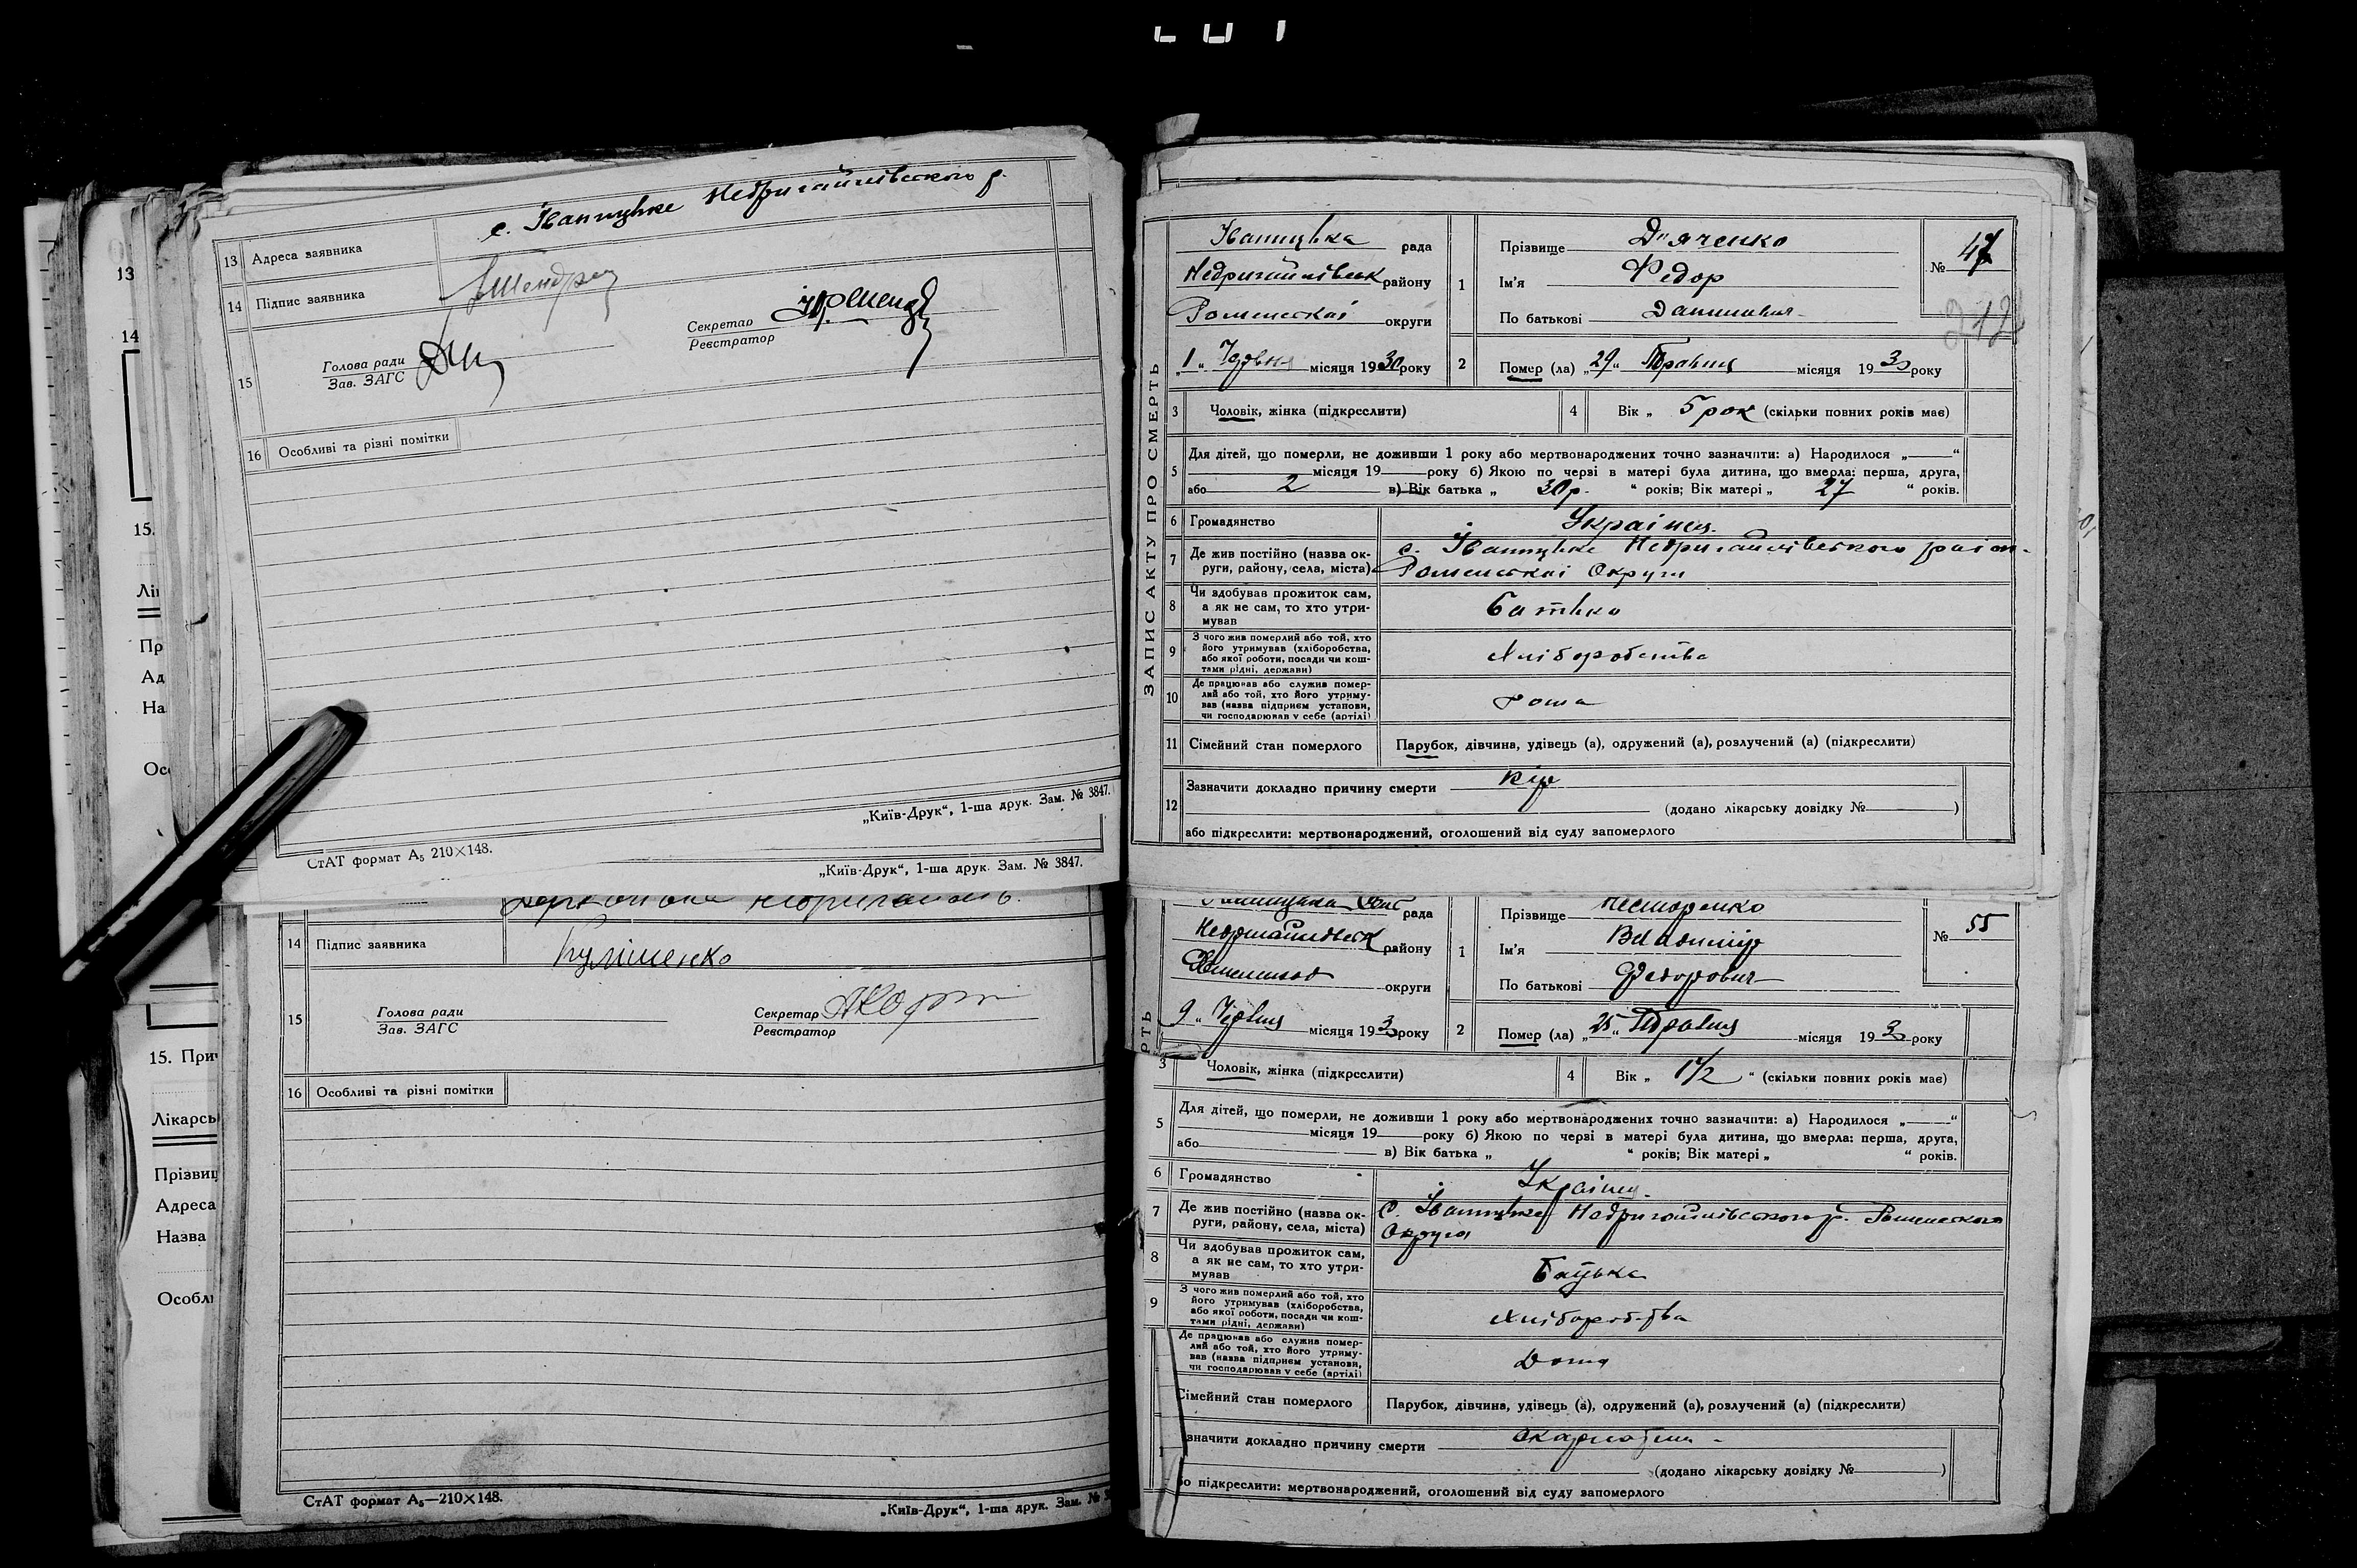 13 Адреса заявника с. Іваницьке Недригайлівського р.
14 Підпис заявника
15 Голова ради
Зав. ЗАГС
Секретар
Реєстратор
16 Особливі та різні помітки
„Київ-Друк“, 1-ша друк. Зам. № 3847.
СтАТ формат А5 210×148.
„Київ-Друк“, 1-ша друк. Зам. № 3847.
14 Підпис заявника Кулішенко
15 Голова ради
Зав. ЗАГС
Секретар
Реєстратор
16 Особливі та різні помітки
СтАТ формат А5—210×148.
„Київ-Друк“, 1-ша друк. Зам. №
13
14
15.
15. Прич
Лікарсь
Прізвищ
Адреса
Назва
Особл
ЗАПИС АКТУ ПРО СМЕРТЬ
Іваницька рада
Недригайлівськ району
Роменської округи
„1“ Червня місяця 1930 року
1 Прізвище Дяченко
Ім'я Федор
По батькові Данилович
№ 47
212
2 Помер (ла) „29“ Травня місяця 1930 року
3 Чоловік, жінка (підкреслити)
4 Вік „ 5 рок (скільки повних років має)
5 Для дітей, що померли, не доживши 1 року або мертвонароджених точно зазначити: а) Народилося „ “
місяця 19 року б) Якою по черзі в матері була дитина, що вмерла: перша, друга,
або 2 в) Вік батька „ 30 р. “ років; Вік матері „ 27 “ років.
6 Громадянство Українец.
7 Де жив постійно (назва округи, району, села, міста) с. Іваницьке Недригайлівського район.
Роменської Округи
8 Чи здобував прожиток сам,
а як не сам, то хто утримував
Батько
9 З чого жив померлий або той, хто
його утримував (хліборобства,
або якої роботи, посади чи коштами рідні, держави)
Хліборобства
10 Де працював або служив померлий або той, хто його утримував (назва підприєм установи,
чи господарював у себе (артілі)
дома
11 Сімейний стан померлого Парубок, дівчина, удівець (а), одружений (а), розлучений (а) (підкреслити)
12 Зазначити докладно причину смерти Кір
(додано лікарську довідку № )
або підкреслити: мертвонароджений, оголошений від суду запомерлого
рада
району
округи
9 „ Червня місяця 1930 року
1 Прізвище Несторенко
Ім'я Владимір
По батькові Федорович
№ 55
2 Помер (ла) „25“ Травня місяця 1930 року
3 Чоловік, жінка (підкреслити)
4 Вік „ 1 1/2 “ (скільки повних років має)
5 Для дітей, що померли, не доживши 1 року або мертвонароджених точно зазначити: а) Народилося „ “
місяця 19 року б) Якою по черзі в матері була дитина, що вмерла: перша, друга,
або в) Вік батька „ “ років; Вік матері „ “ років.
6 Громадянство Українец.
7 Де жив постійно (назва округи, району, села, міста) С. Іваницьке Недригайлівського р. Роменского
Округа
8 Чи здобував прожиток сам,
а як не сам, то хто утримував
Батька
9 З чого жив померлий або той, хто
його утримував (хліборобства,
або якої роботи, посади чи коштами рідні, держави)
Хліборобства
Де працював або служив померлий або той, хто його утримував (назва підприєм установи,
чи господарював у себе (артілі)
Дома
Сімейний стан померлого Парубок, дівчина, удівець (а), одружений (а), розлучений (а) (підкреслити)
значити докладно причину смерти скарлатина
(додано лікарську довідку № )
бо підкреслити: мертвонароджений, оголошений від суду запомерлого